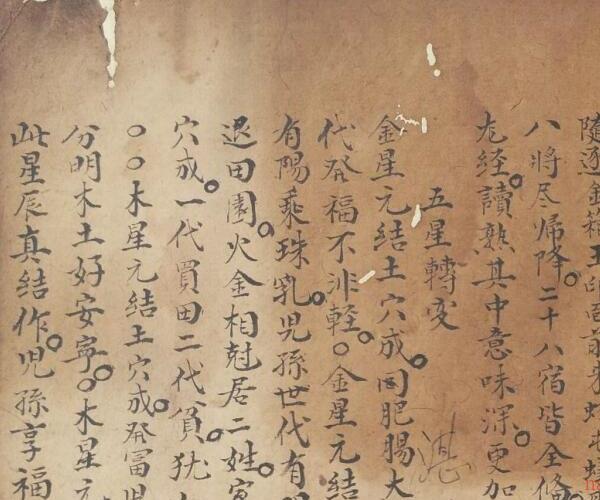 隨逐金箱玉印
八將尽帰降。二十八宿皆全
尤経。讀熟其中意味深。更加
五星轉变
金星元結土穴成。田肥腸大
代発福不非軽。○金星元結
有陽乘珠乳。児孫世代有
退田園。火金相尅居二姓。
穴成。一代買田二代貧。犹
○○木星元結土穴成。発冨児
分明木土好安寧。○木星元
此星辰真結作。児孫享福
湛